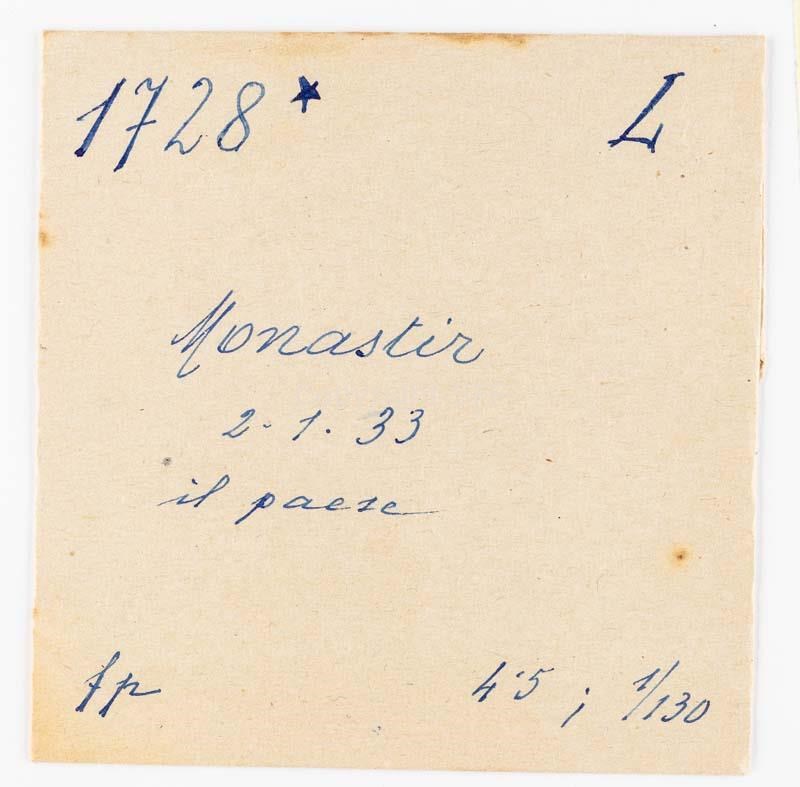 1728* L
Monastir
2.1.33
il paese
fp 4.5 ; 1/130